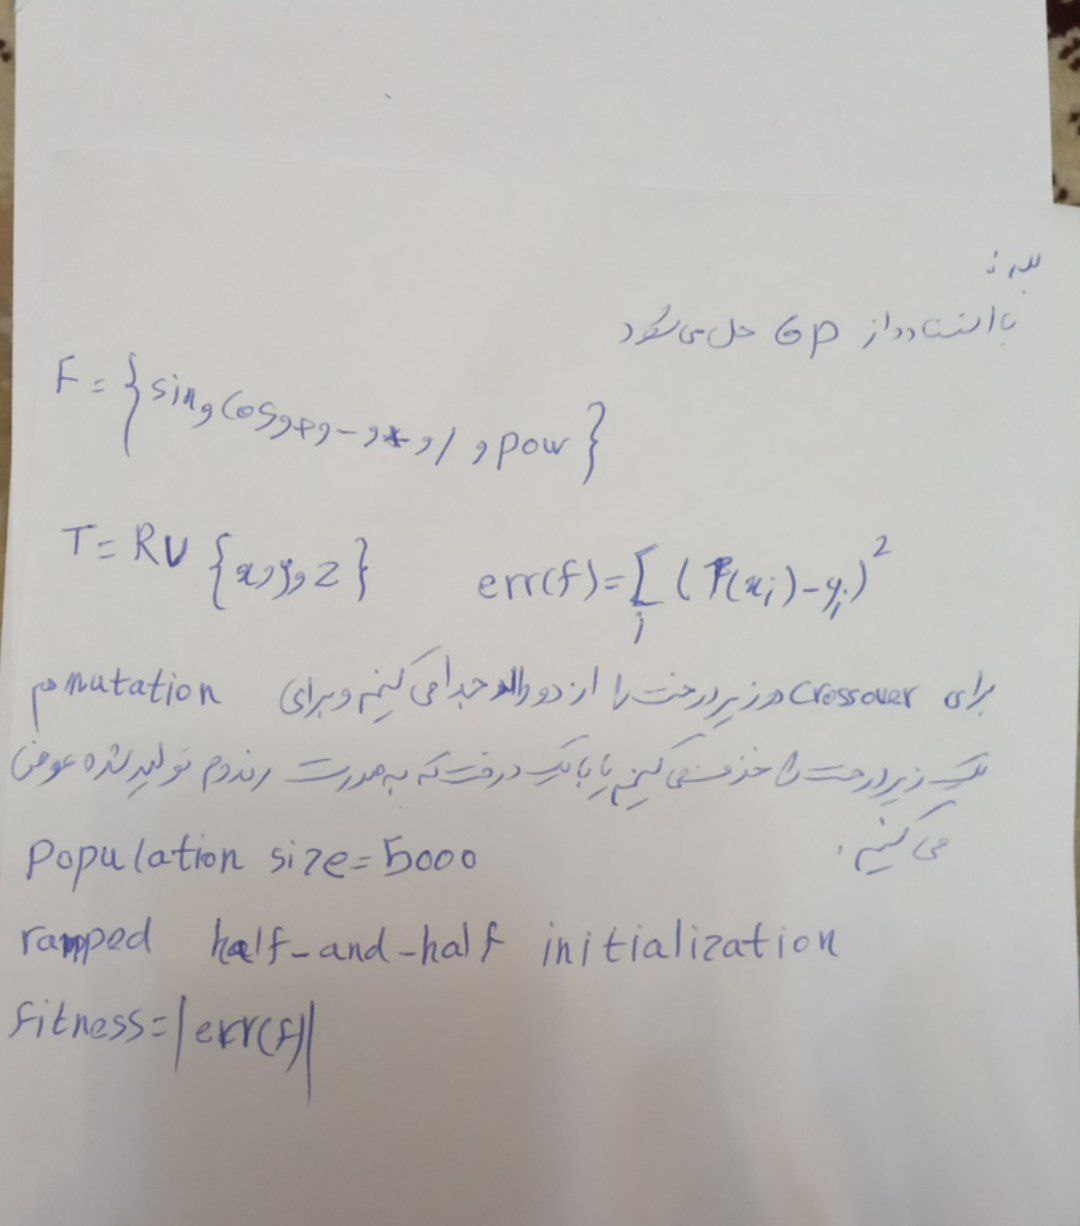 بله :
با استفاده از GP حل می شود
F = {sin, cos, +, -, *, /, pow}
T = R ∪ {x, y, z} err(f) = Σ_i (f(x_i) - y_i)^2
برای crossover دو زیر درخت را از دو والد جدا می کنیم و برای mutation
یک زیر درخت را حذف می کنیم یا با یک درخت که به صورت رندوم تولید شده عوض
می کنیم.
Population size = 5000
ramped half-and-half initialization
fitness = |err(f)|